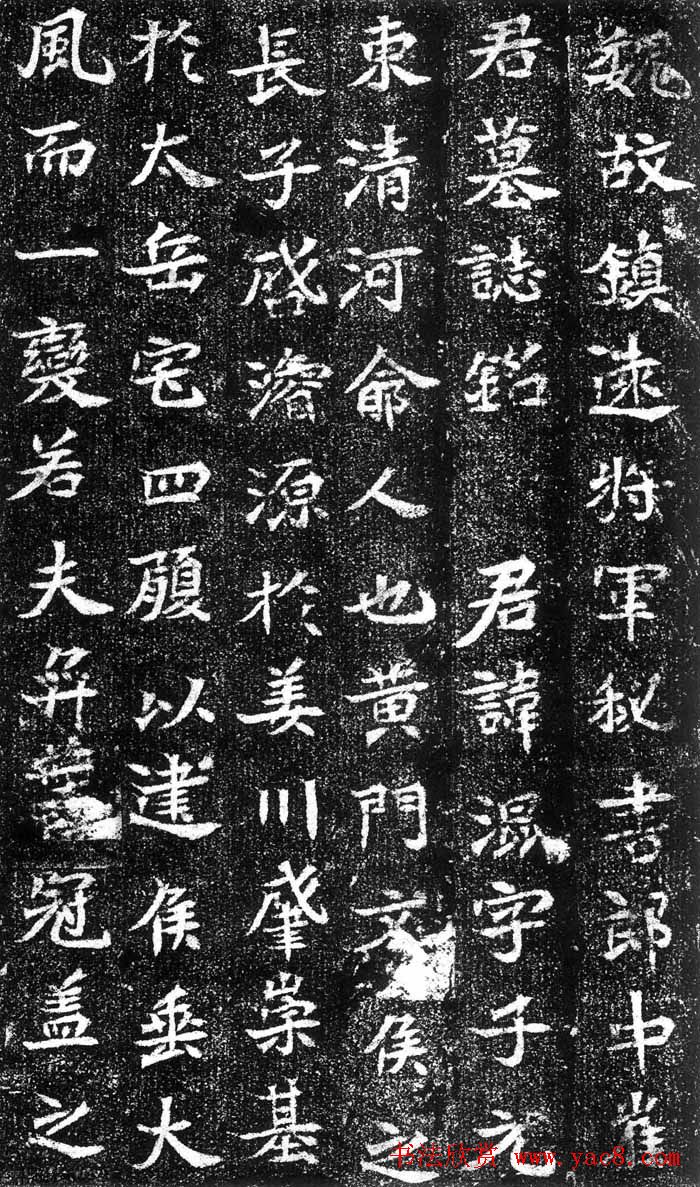 魏故鎮遠將軍秘書郎中崔
君墓誌銘 君諱混字子元
東清河鄃人也黃門文侯之
長子啓濬源於姜川肇崇基
於太岳宅四履以建侯垂大
風而一變若夫弈冠盖之
书法欣赏 www.yac8.com